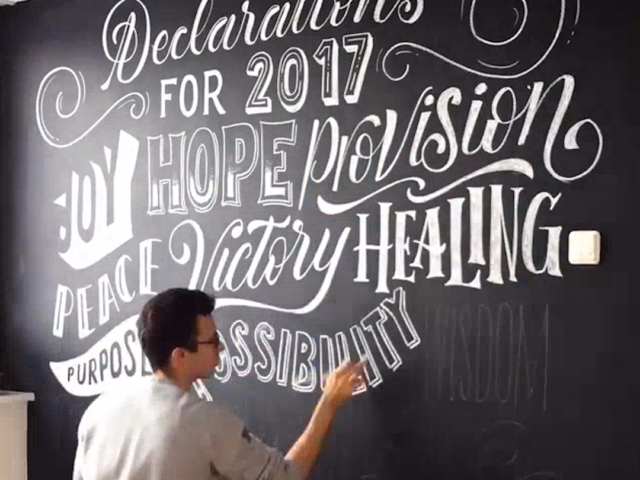 Declarations
FOR 2017
JOY HOPE Provision
PEACE Victory HEALING
PURPOSE POSSIBILITY WISDOM